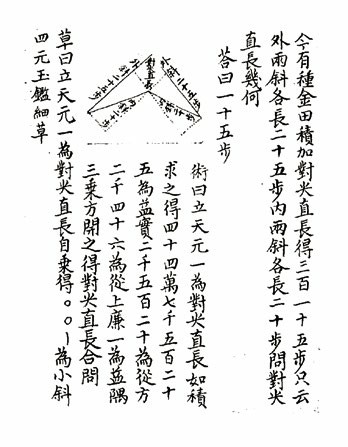 今有種金田積加對尖直長得三百一十五步只云
外兩斜各長二十五步內兩斜各長二十步問對尖
直長幾何
荅曰一十五步
術曰立天元一為對尖直長如積
求之得四十四萬七千五百二十
五為益實二千五百二十為從方
二千四十六為從上廉一為益隅
三乘方開之得對尖直長合問
草曰立天元一為對尖直長自乘得○○｜為小斜
四元玉鑑細草